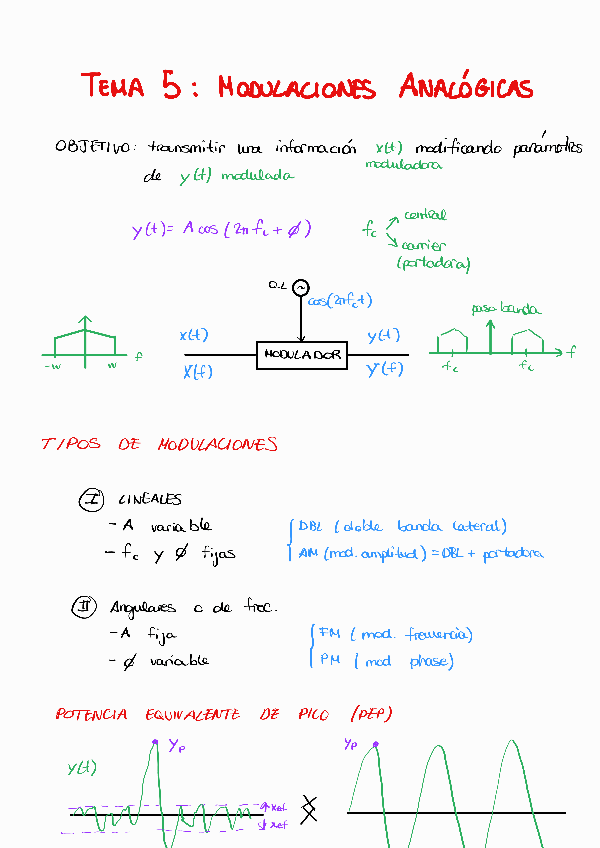 TEMA 5: MODULACIONES ANALÓGICAS
OBJETIVO: transmitir una información x(t) modificando parámetros
moduladora
de y(t) modulada
y(t)= A cos (2π fc + ø)
fc
central
carrier
(portadora)
O.L
cos(2πfct)
paso banda
x(t)
y(t)
MODULADOR
X(f)
Y(f)
-w
w
f
fc
fc
f
TIPOS DE MODULACIONES
I LINEALES
- A variable
- fc y ø fijas
DBL (doble banda lateral)
AM (mod. amplitud) = DBL + portadora
II Angulares o de frec.
- A fija
- ø variable
FM (mod. frecuencia)
PM (mod phase)
POTENCIA EQUIVALENTE DE PICO (PEP)
y(t)
Yp
xef
xef
Yp